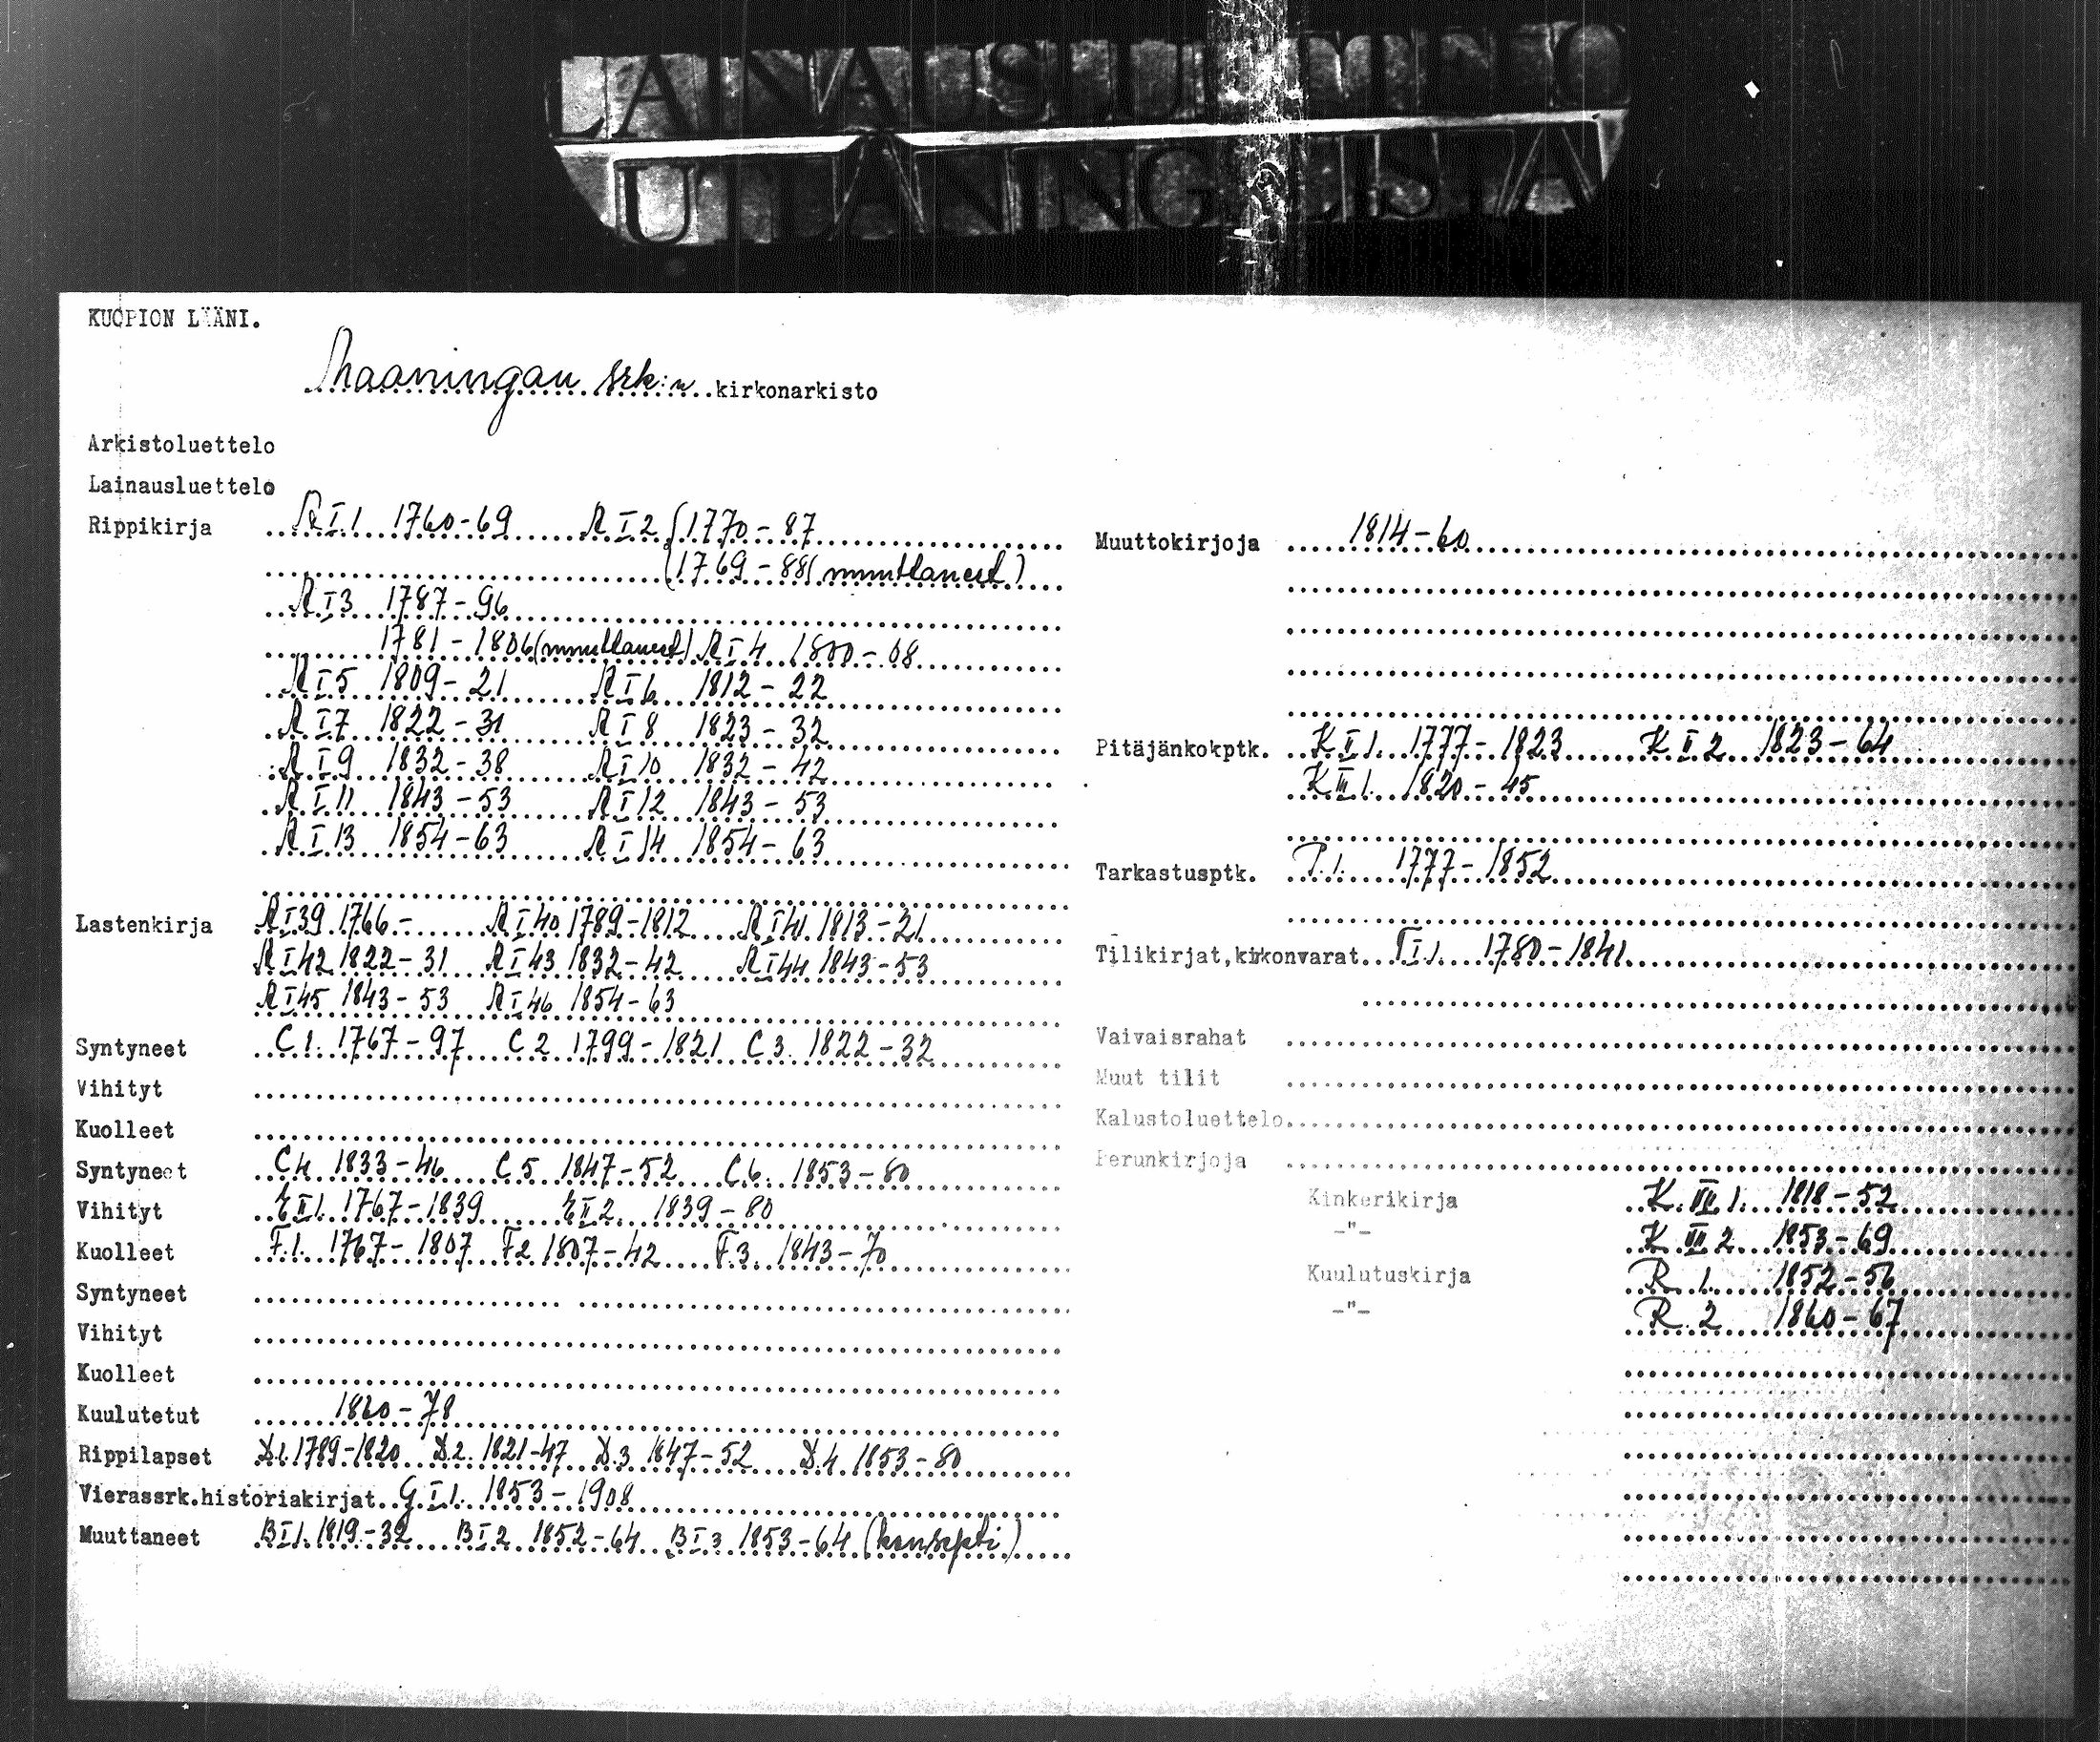 LAINAUSLUETTELO
UTLÅNINGSLISTA
KUOPION LÄÄNI.
Maaningan srk:n kirkonarkisto
Arkistoluettelo
Lainausluettelo
Rippikirja R I.1. 1760-69 R I 2 (1770-87
(1769-88 (muuttaneet)
R I 3 1787-96
1781-1806 (muuttaneet) R I 4 1800-08
R I 5 1809-21 R I 6 1812-22
R I 7 1822-31 R I 8 1823-32
R I 9 1832-38 R I 10 1832-42
R I 11 1843-53 R I 12 1843-53
R I 13 1854-63 R I 14 1854-63
Lastenkirja R I 39 1766- R I 40 1789-1812 R I 41 1813-21
R I 42 1822-31 R I 43 1832-42 R I 44 1843-53
R I 45 1843-53 R I 46 1854-63
Syntyneet C 1. 1767-97 C 2 1799-1821 C 3. 1822-32
Vihityt
Kuolleet
Syntyneet C 4. 1833-46 C 5 1847-52 C 6. 1853-80
Vihityt E II 1. 1767-1839 E II 2. 1839-80
Kuolleet F. 1. 1767-1807 F 2 1807-42 F 3. 1843-70
Syntyneet
Vihityt
Kuolleet
Kuulutetut 1860-78
Rippilapset D. 1. 1789-1820 D. 2. 1821-47 D. 3 1847-52 D. 4. 1853-80
Vierassrk.historiakirjat G I 1. 1853-1908
Muuttaneet B I 1. 1819-32 B I 2 1852-64 B I 3 1853-64 (konsepti)
Muuttokirjoja 1814-60
Pitäjänkokptk. K II 1. 1777-1823 K II 2 1823-64
K III 1. 1820-45
Tarkastusptk. P. 1. 1777-1852
Tilikirjat,kirkonvarat T I 1. 1780-1841
Vaivaisrahat
Muut tilit
Kalustoluettelo
Perunkirjoja
Kinkerikirja K. VII 1. 1818-52
-"- K VII 2 1853-69
Kuulutuskirja R. 1. 1852-56
-"- R. 2 1860-67